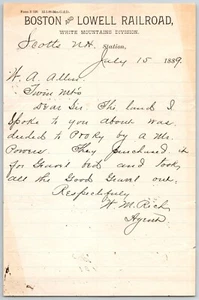 BOSTON AND LOWELL RAILROAD,
WHITE MOUNTAINS DIVISION.
Scotts N.H. Station,
July 15 1889.
W. A. Allen
Twin Mts
Dear Sir The land I
spoke to you about was
deeded to by a Mr.
Powers. They purchased it
for Gravel bed and took
all the Good Gravel out.
Respectfully
W. M. Rich
Agent